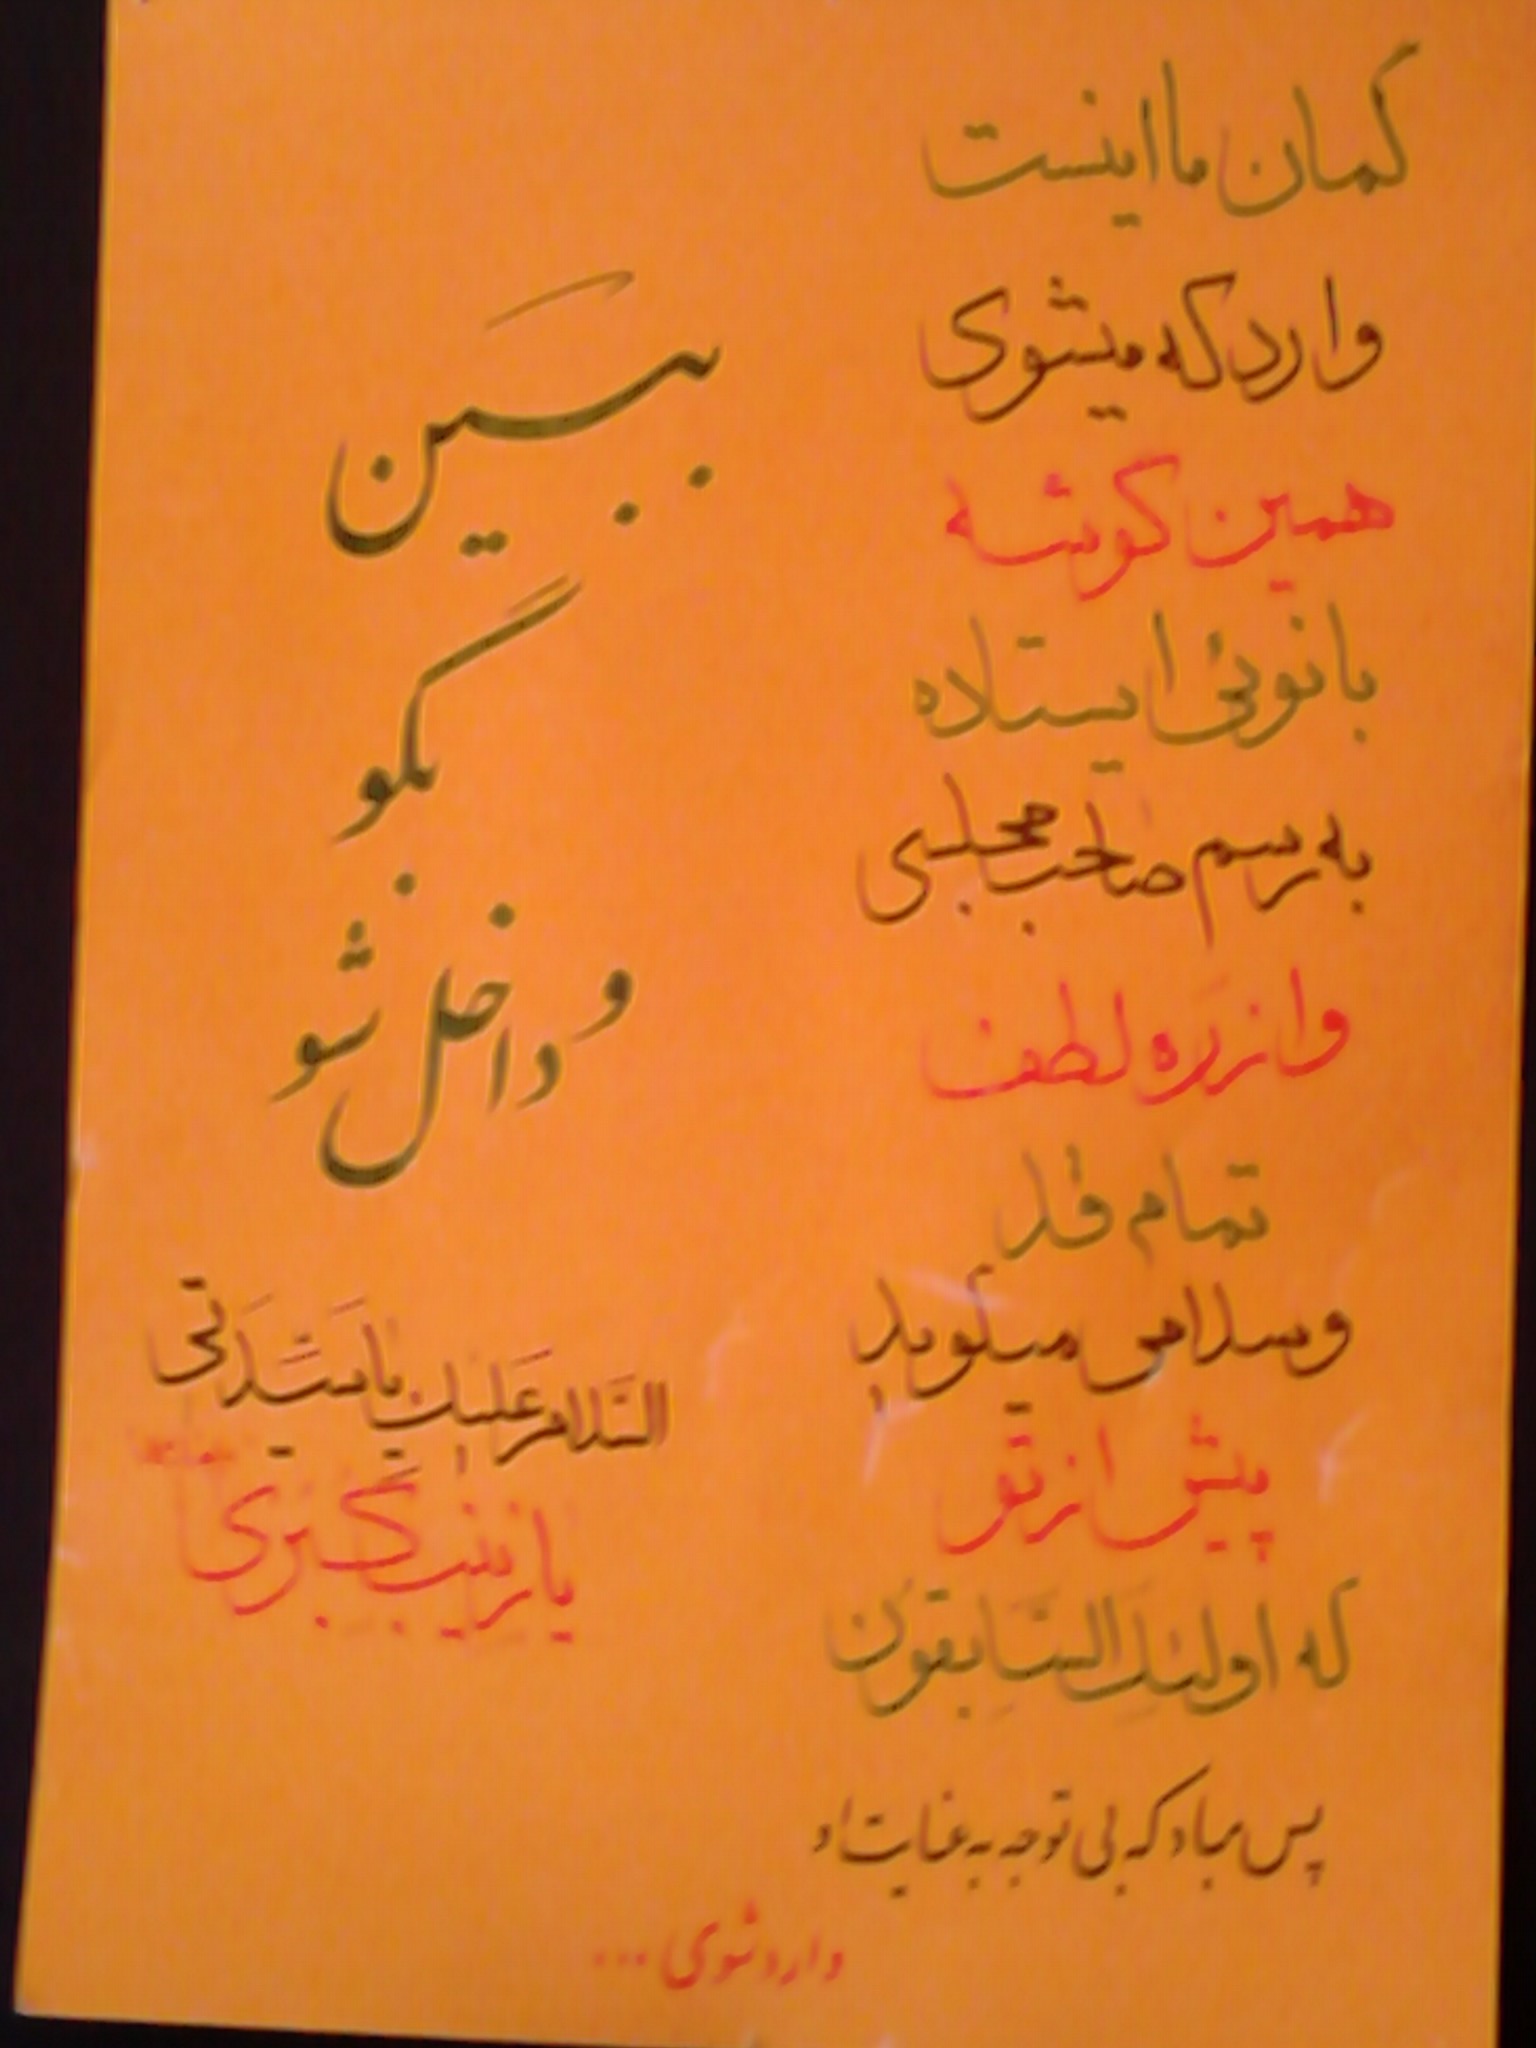 گمان ما اینست
وارد که میشوی
همین گوشه
بانوئی ایستاده
به رسم صاحب مجلسی
و از ره لطف
تمام قد
و سلامی میگوید
پیش از تو
که اولئك السَّابِقون
پس مباد که بی توجه به عنایت او
وارد شوی ...
ببین
بگو
و داخل شو
السَّلام عَلیك یا سَیّدَتی
یا زینب کبری